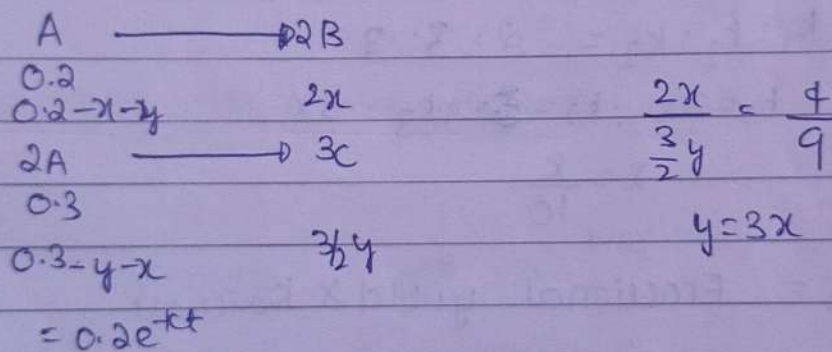 A ⟶ 2B
0.2
0.2-x-y 2x 2x / 3/2 y = 4/9
2A ⟶ 3C
0.3
0.3-y-x 3/2 y y=3x
= 0.2e^-kt